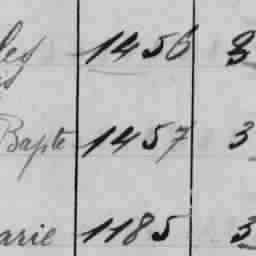 les 1456 3
Bapte 1457 3
arie 1185 3